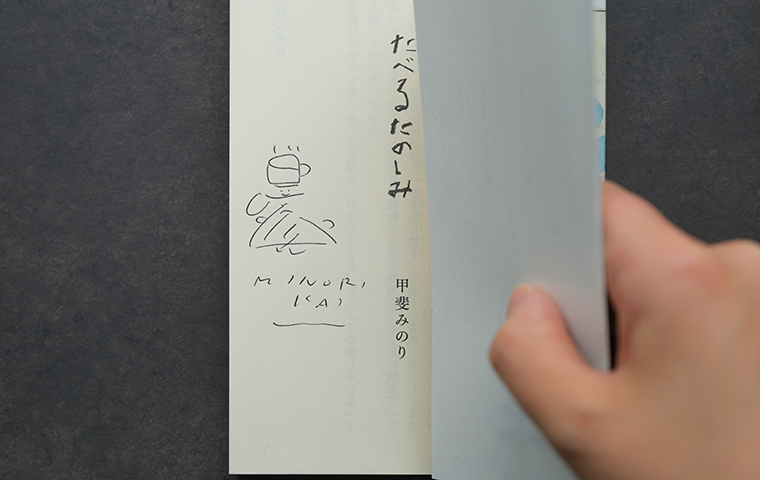 たべるたのしみ
甲斐みのり
MINORI
KAI